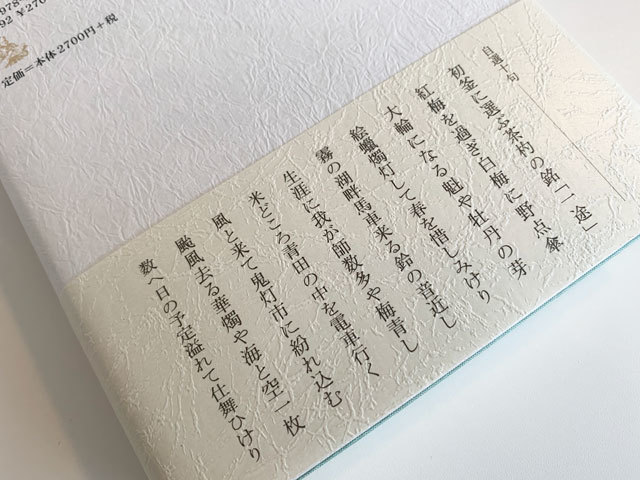 978-
92 ¥270
定価=本体2700円+税
自選十句
初釜に選ぶ茶杓の銘「一途」
紅梅を過ぎ白梅に野点傘
大輪になる魁や牡丹の芽
絵蠟燭灯して春を惜しみけり
霧の湖畔馬車来る鈴の音近し
生涯に我が師数多や梅青し
米どころ青田の中を電車行く
風と来て鬼灯市に紛れ込む
颱風去る華燭や海と空一枚
数へ日の予定溢れて仕舞ひけり